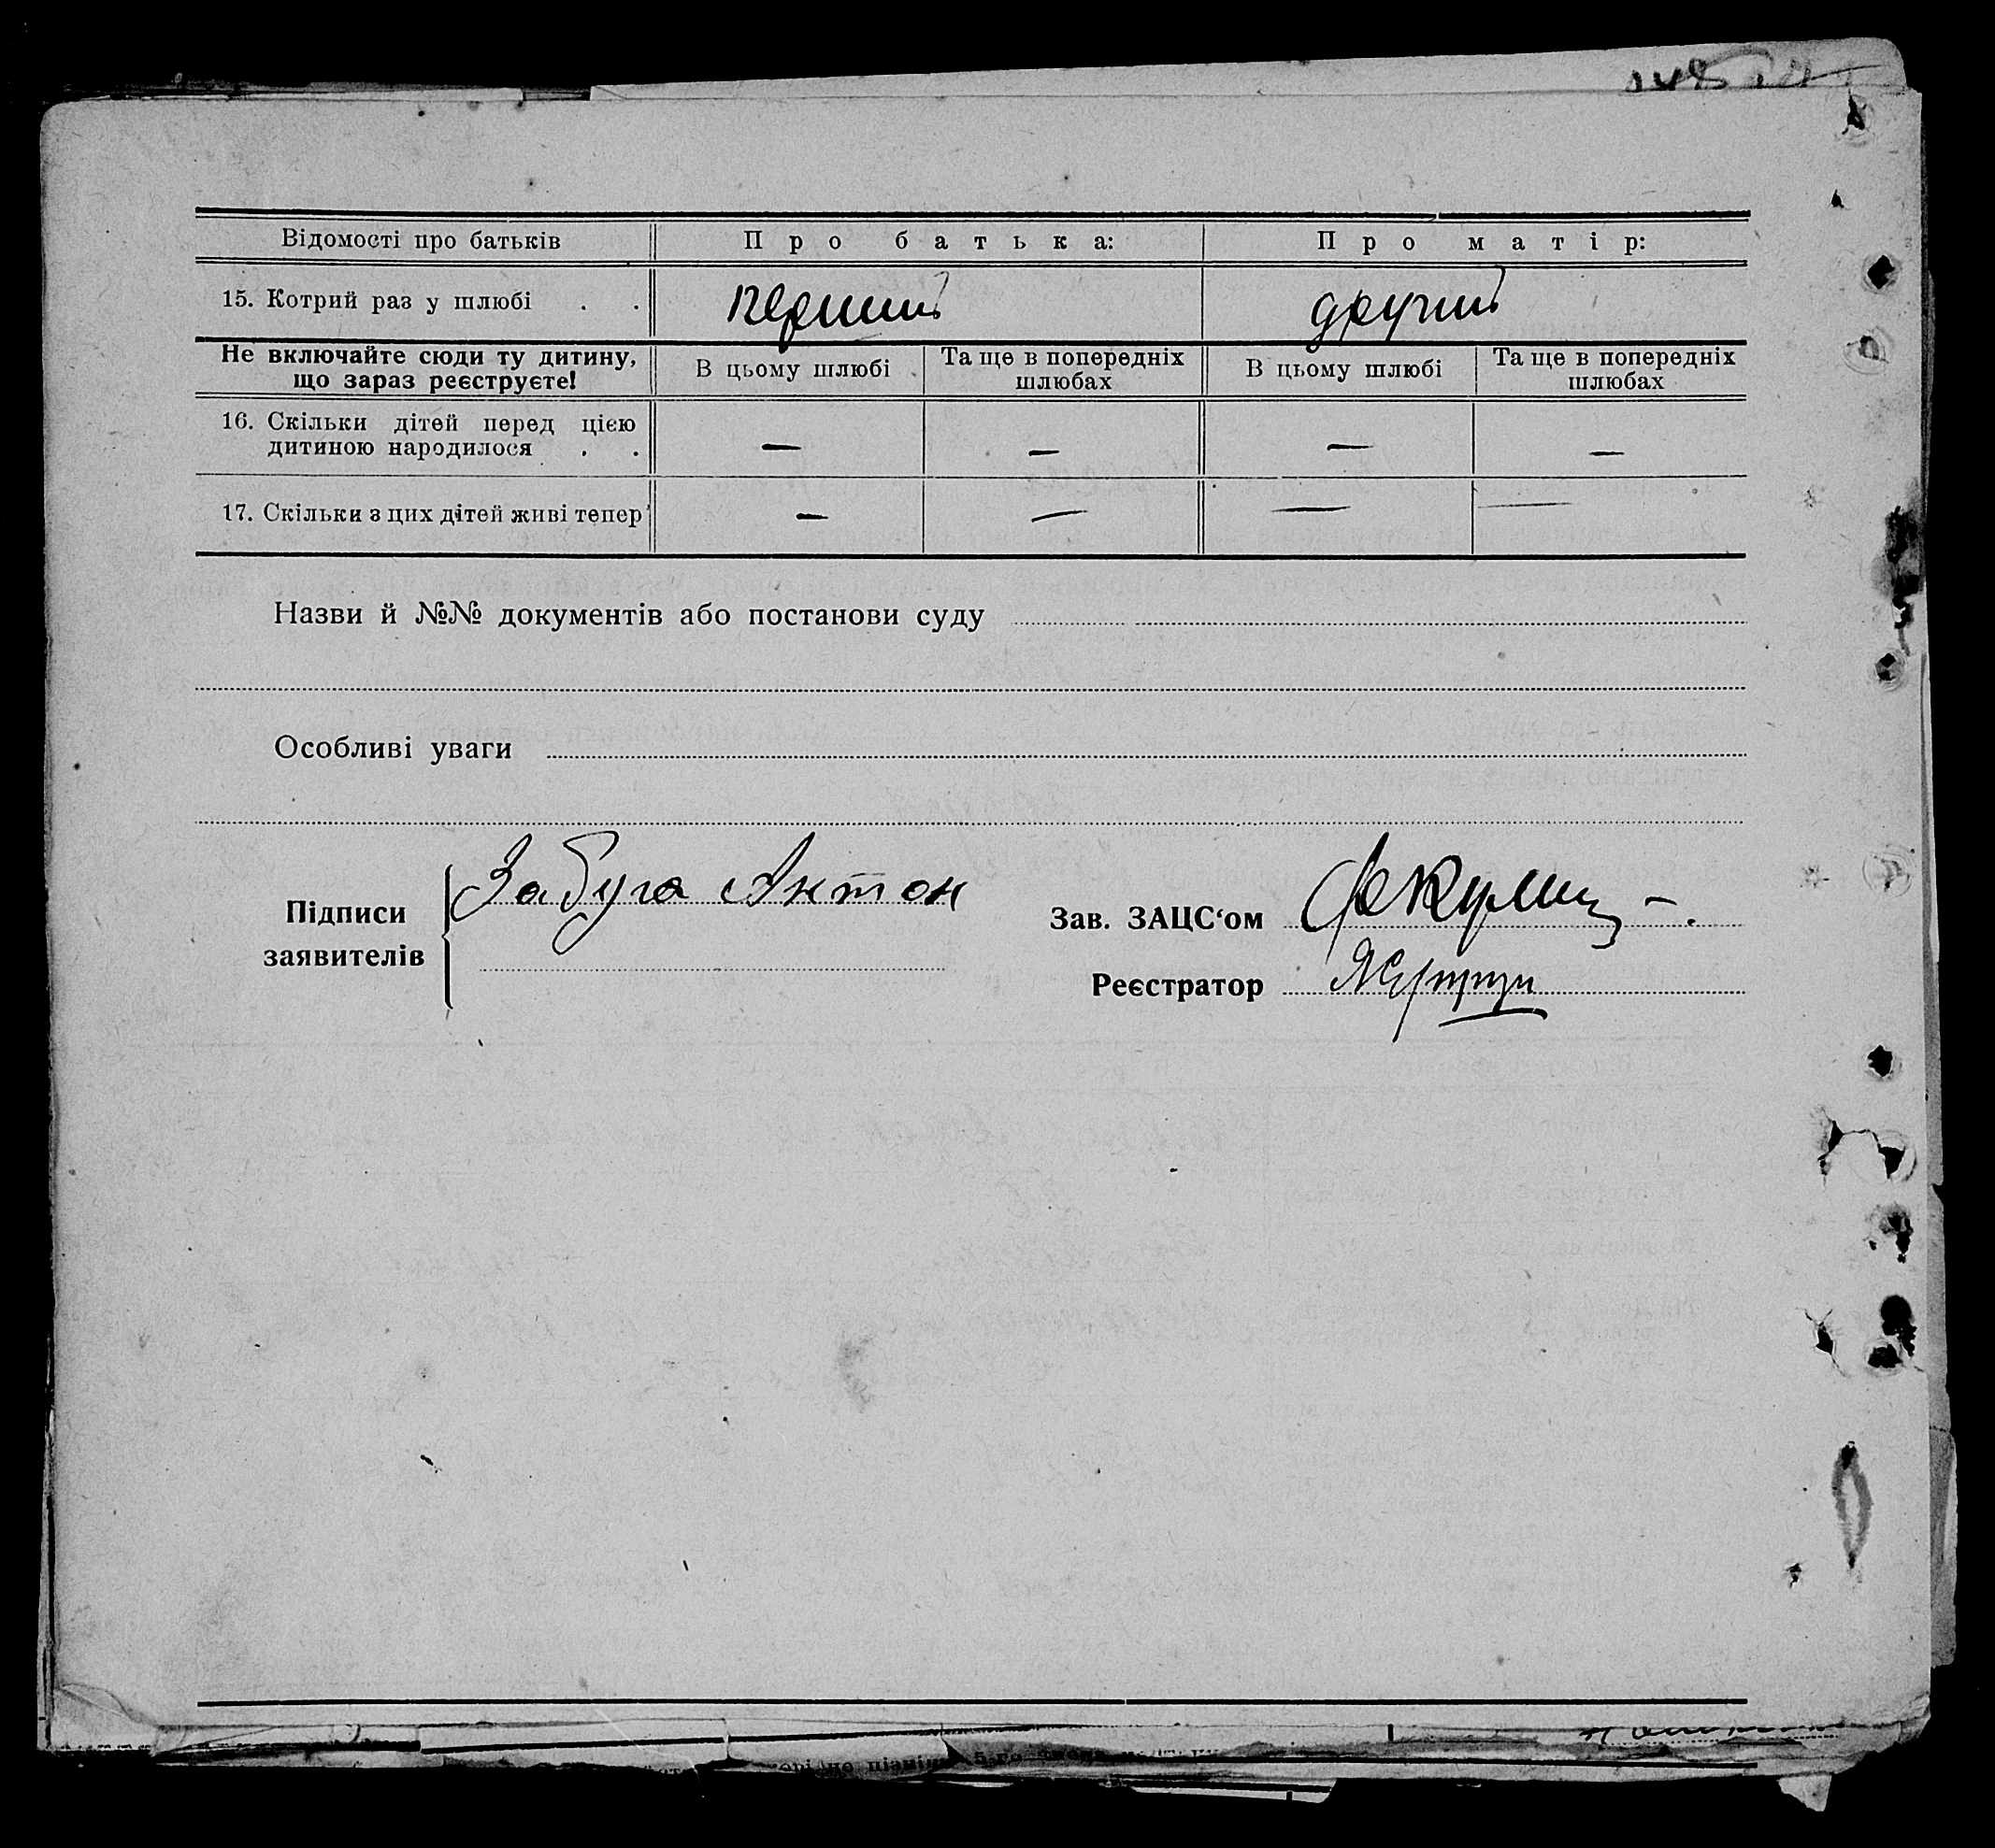 Відомості про батьків П р о б а т ь к а: П р о м а т і р:
15. Котрий раз у шлюбі . . перший другий
Не включайте сюди ту дитину,
що зараз реєструєте!
В цьому шлюбі
Та ще в попередніх
шлюбах
В цьому шлюбі
Та ще в попередніх
шлюбах
16. Скільки дітей перед цією
дитиною народилося . . — — — —
17. Скільки з цих дітей живі тепер — — — —
Назви й №№ документів або постанови суду
Особливі уваги
Підписи
заявителів
Забуга Антон
Зав. ЗАЦС‘ом
Реєстратор